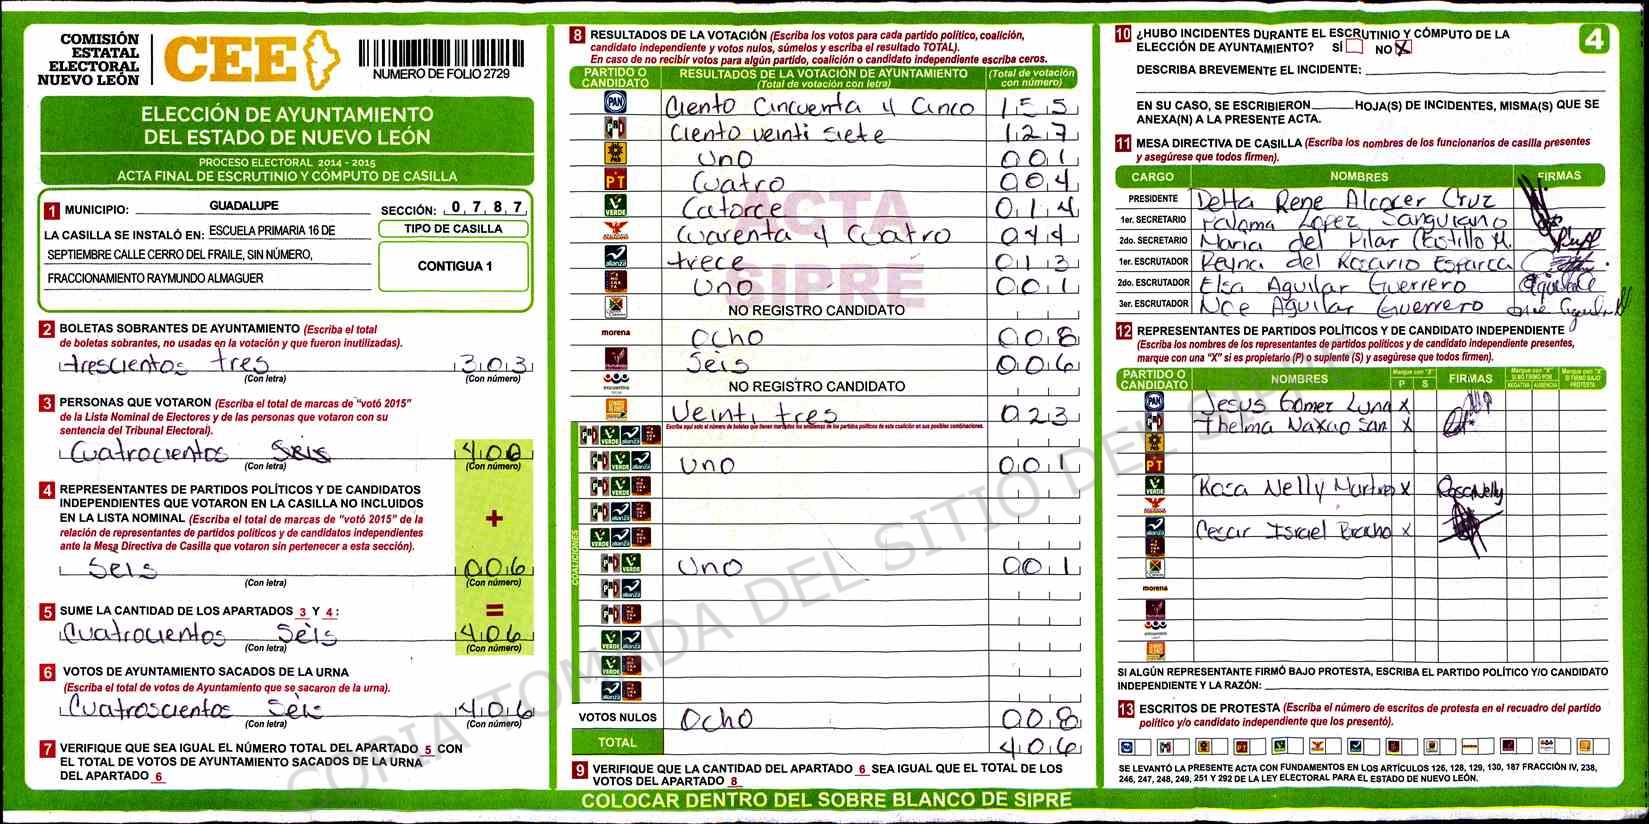 COMISIÓN
ESTATAL
ELECTORAL
NUEVO LEÓN
CEE
NUMERO DE FOLIO 2729
ELECCIÓN DE AYUNTAMIENTO
DEL ESTADO DE NUEVO LEÓN
PROCESO ELECTORAL 2014 - 2015
ACTA FINAL DE ESCRUTINIO Y CÓMPUTO DE CASILLA
1 MUNICIPIO: GUADALUPE SECCIÓN: 0,7,8,7
LA CASILLA SE INSTALÓ EN: ESCUELA PRIMARIA 16 DE
SEPTIEMBRE CALLE CERRO DEL FRAILE, SIN NÚMERO,
FRACCIONAMIENTO RAYMUNDO ALMAGUER
TIPO DE CASILLA
CONTIGUA 1
2 BOLETAS SOBRANTES DE AYUNTAMIENTO (Escriba el total
de boletas sobrantes, no usadas en la votación y que fueron inutilizadas).
trescientos tres 3,0,3
(Con letra) (Con número)
3 PERSONAS QUE VOTARON (Escriba el total de marcas de "votó 2015"
de la Lista Nominal de Electores y de las personas que votaron con su
sentencia del Tribunal Electoral).
Cuatrocientos 4,0,0
(Con letra) (Con número)
4 REPRESENTANTES DE PARTIDOS POLÍTICOS Y DE CANDIDATOS
INDEPENDIENTES QUE VOTARON EN LA CASILLA NO INCLUIDOS
EN LA LISTA NOMINAL (Escriba el total de marcas de "votó 2015" de la
relación de representantes de partidos políticos y de candidatos independientes
ante la Mesa Directiva de Casilla que votaron sin pertenecer a esta sección).
+
Seis 0,0,6
(Con letra) (Con número)
5 SUME LA CANTIDAD DE LOS APARTADOS 3 Y 4 :
=
Cuatrocientos Seis 4,0,6
(Con letra) (Con número)
6 VOTOS DE AYUNTAMIENTO SACADOS DE LA URNA
(Escriba el total de votos de Ayuntamiento que se sacaron de la urna).
Cuatroscientos Seis 4,0,6
(Con letra) (Con número)
7 VERIFIQUE QUE SEA IGUAL EL NÚMERO TOTAL DEL APARTADO 5 CON
EL TOTAL DE VOTOS DE AYUNTAMIENTO SACADOS DE LA URNA
DEL APARTADO 6
8 RESULTADOS DE LA VOTACIÓN (Escriba los votos para cada partido político, coalición,
candidato independiente y votos nulos, súmelos y escriba el resultado TOTAL).
En caso de no recibir votos para algún partido, coalición o candidato independiente escriba ceros.
PARTIDO O CANDIDATO RESULTADOS DE LA VOTACIÓN DE AYUNTAMIENTO (Total de votación con letra) (Total de votación con número)
PAN Ciento Cincuenta y Cinco 1,5,5
Ciento veinti siete 1,2,7
Uno 0,0,1
PT Cuatro 0,0,4
VERDE Catorce 0,1,4
Cuarenta y Cuatro 0,4,4
alianza trece 0,1,3
Uno 0,0,1
NO REGISTRO CANDIDATO
morena Ocho 0,0,8
Seis 0,0,6
NO REGISTRO CANDIDATO
Veinti tres 0,2,3
Escriba aquí solo el número de boletas que tienen marcados los emblemas de los partidos políticos de esta coalición en sus posibles combinaciones.
COALICIONES
Uno 0,0,1
Uno 0,0,1
VOTOS NULOS Ocho 0,0,8
TOTAL 4,0,6
9 VERIFIQUE QUE LA CANTIDAD DEL APARTADO 6 SEA IGUAL QUE EL TOTAL DE LOS
VOTOS DEL APARTADO 8
ACTA
SIPRE
COPIA TOMADA DEL SITIO DEL
COLOCAR DENTRO DEL SOBRE BLANCO DE SIPRE
4
10 ¿HUBO INCIDENTES DURANTE EL ESCRUTINIO Y CÓMPUTO DE LA
ELECCIÓN DE AYUNTAMIENTO? SÍ NO X
DESCRIBA BREVEMENTE EL INCIDENTE:
EN SU CASO, SE ESCRIBIERON HOJA(S) DE INCIDENTES, MISMA(S) QUE SE
ANEXA(N) A LA PRESENTE ACTA.
11 MESA DIRECTIVA DE CASILLA (Escriba los nombres de los funcionarios de casilla presentes
y asegúrese que todos firmen).
CARGO NOMBRES FIRMAS
PRESIDENTE Delta Rene Alcocer Cruz
1er. SECRETARIO Paloma Lopez Sanguiano
2do. SECRETARIO Maria del Pilar Castillo M.
1er. ESCRUTADOR Reyna del Rosario Esparca
2do. ESCRUTADOR Elsa Aguilar Guerrero
3er. ESCRUTADOR Noe Aguilar Guerrero
12 REPRESENTANTES DE PARTIDOS POLÍTICOS Y DE CANDIDATO INDEPENDIENTE
(Escriba los nombres de los representantes de partidos políticos y de candidato independiente presentes,
marque con una "X" si es propietario (P) o suplente (S) y asegúrese que todos firmen).
PARTIDO O CANDIDATO NOMBRES P S FIRMAS
PAN Jesus Gomez Luna X
Thelma San X
PT
VERDE Rosa Nelly Martinez X RosaNelly
Cesar Israel X
morena
SI ALGÚN REPRESENTANTE FIRMÓ BAJO PROTESTA, ESCRIBA EL PARTIDO POLÍTICO Y/O CANDIDATO
INDEPENDIENTE Y LA RAZÓN:
13 ESCRITOS DE PROTESTA (Escriba el número de escritos de protesta en el recuadro del partido
político y/o candidato independiente que los presentó).
SE LEVANTÓ LA PRESENTE ACTA CON FUNDAMENTOS EN LOS ARTÍCULOS 126, 128, 129, 130, 187 FRACCIÓN IV, 238,
246, 247, 248, 249, 251 Y 292 DE LA LEY ELECTORAL PARA EL ESTADO DE NUEVO LEÓN.